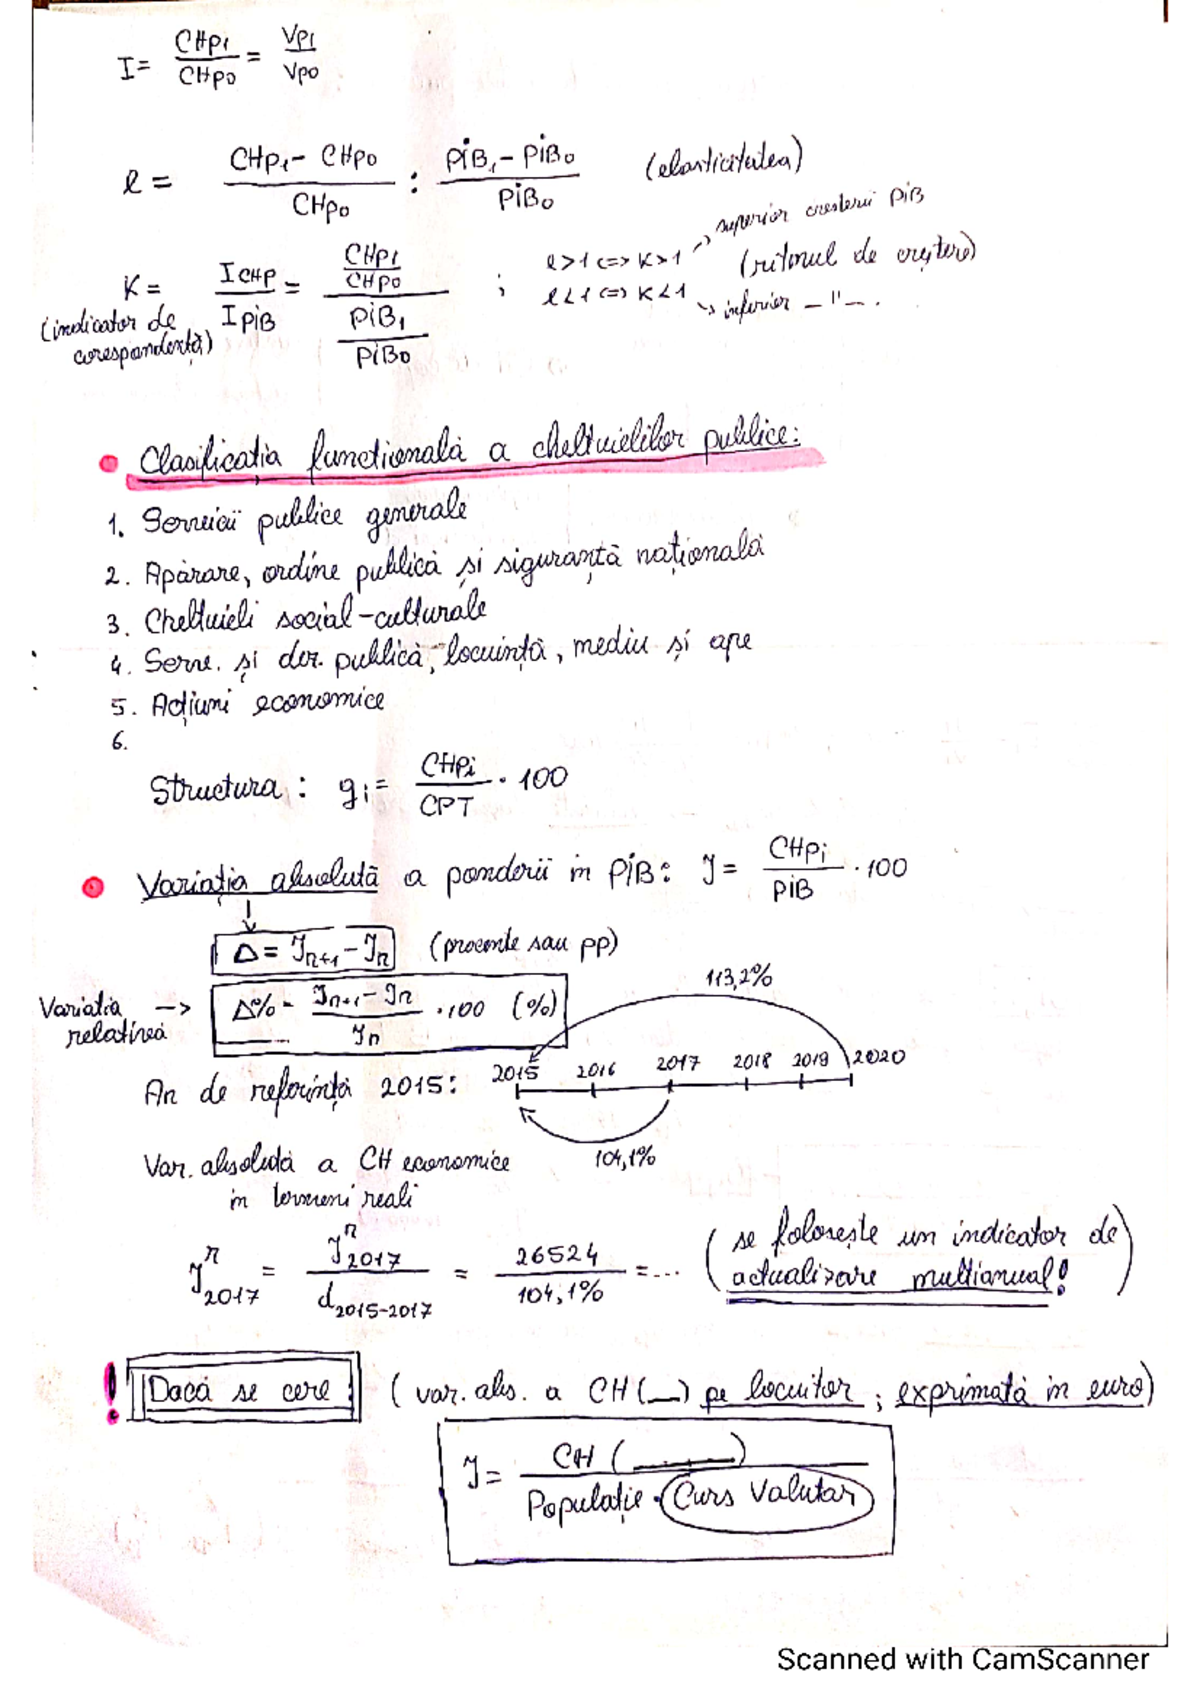 I = CHp1/CHp0 = Vp1/Vp0
e = (CHp1 - CHp0)/CHp0 : (PiB1 - PiB0)/PiB0 (elasticitatea)
K = ICHP/IPiB = (CHp1/CHp0)/(PiB1/PiB0) ; e>1 <=> K>1 -> superior creșterii PiB
(indicator de corespondență) e<1 <=> K<1 (ritmul de creștere)
-> inferior —"—.
• Clasificația funcțională a cheltuielilor publice:
1. Servicii publice generale
2. Apărare, ordine publică și siguranță națională
3. Cheltuieli social-culturale
4. Serv. și dez. publică, locuință, mediu și ape
5. Acțiuni economice
6.
Structura : gi = CHPi/CPT · 100
• Variația absolută a ponderii în PiB: Y = CHPi/PiB · 100
Δ = Yn+1 - Yn (procente sau pp)
Variatia relativă -> Δ% = (Yn+1 - Yn)/Yn · 100 (%)
113,2%
An de referință 2015: 2015 2016 2017 2018 2019 2020
104,1%
Var. absolută a CH economice
in termeni reali
Y^r 2017 = Y^n 2017/d 2015-2017 = 26524/104,1% = ... (se folosește un indicator de
actualizare multianual!)
! Dacă se cere : (var. abs. a CH (__) pe locuitor ; exprimată în euro)
Y = CH (____)/Populație · Curs Valutar
Scanned with CamScanner